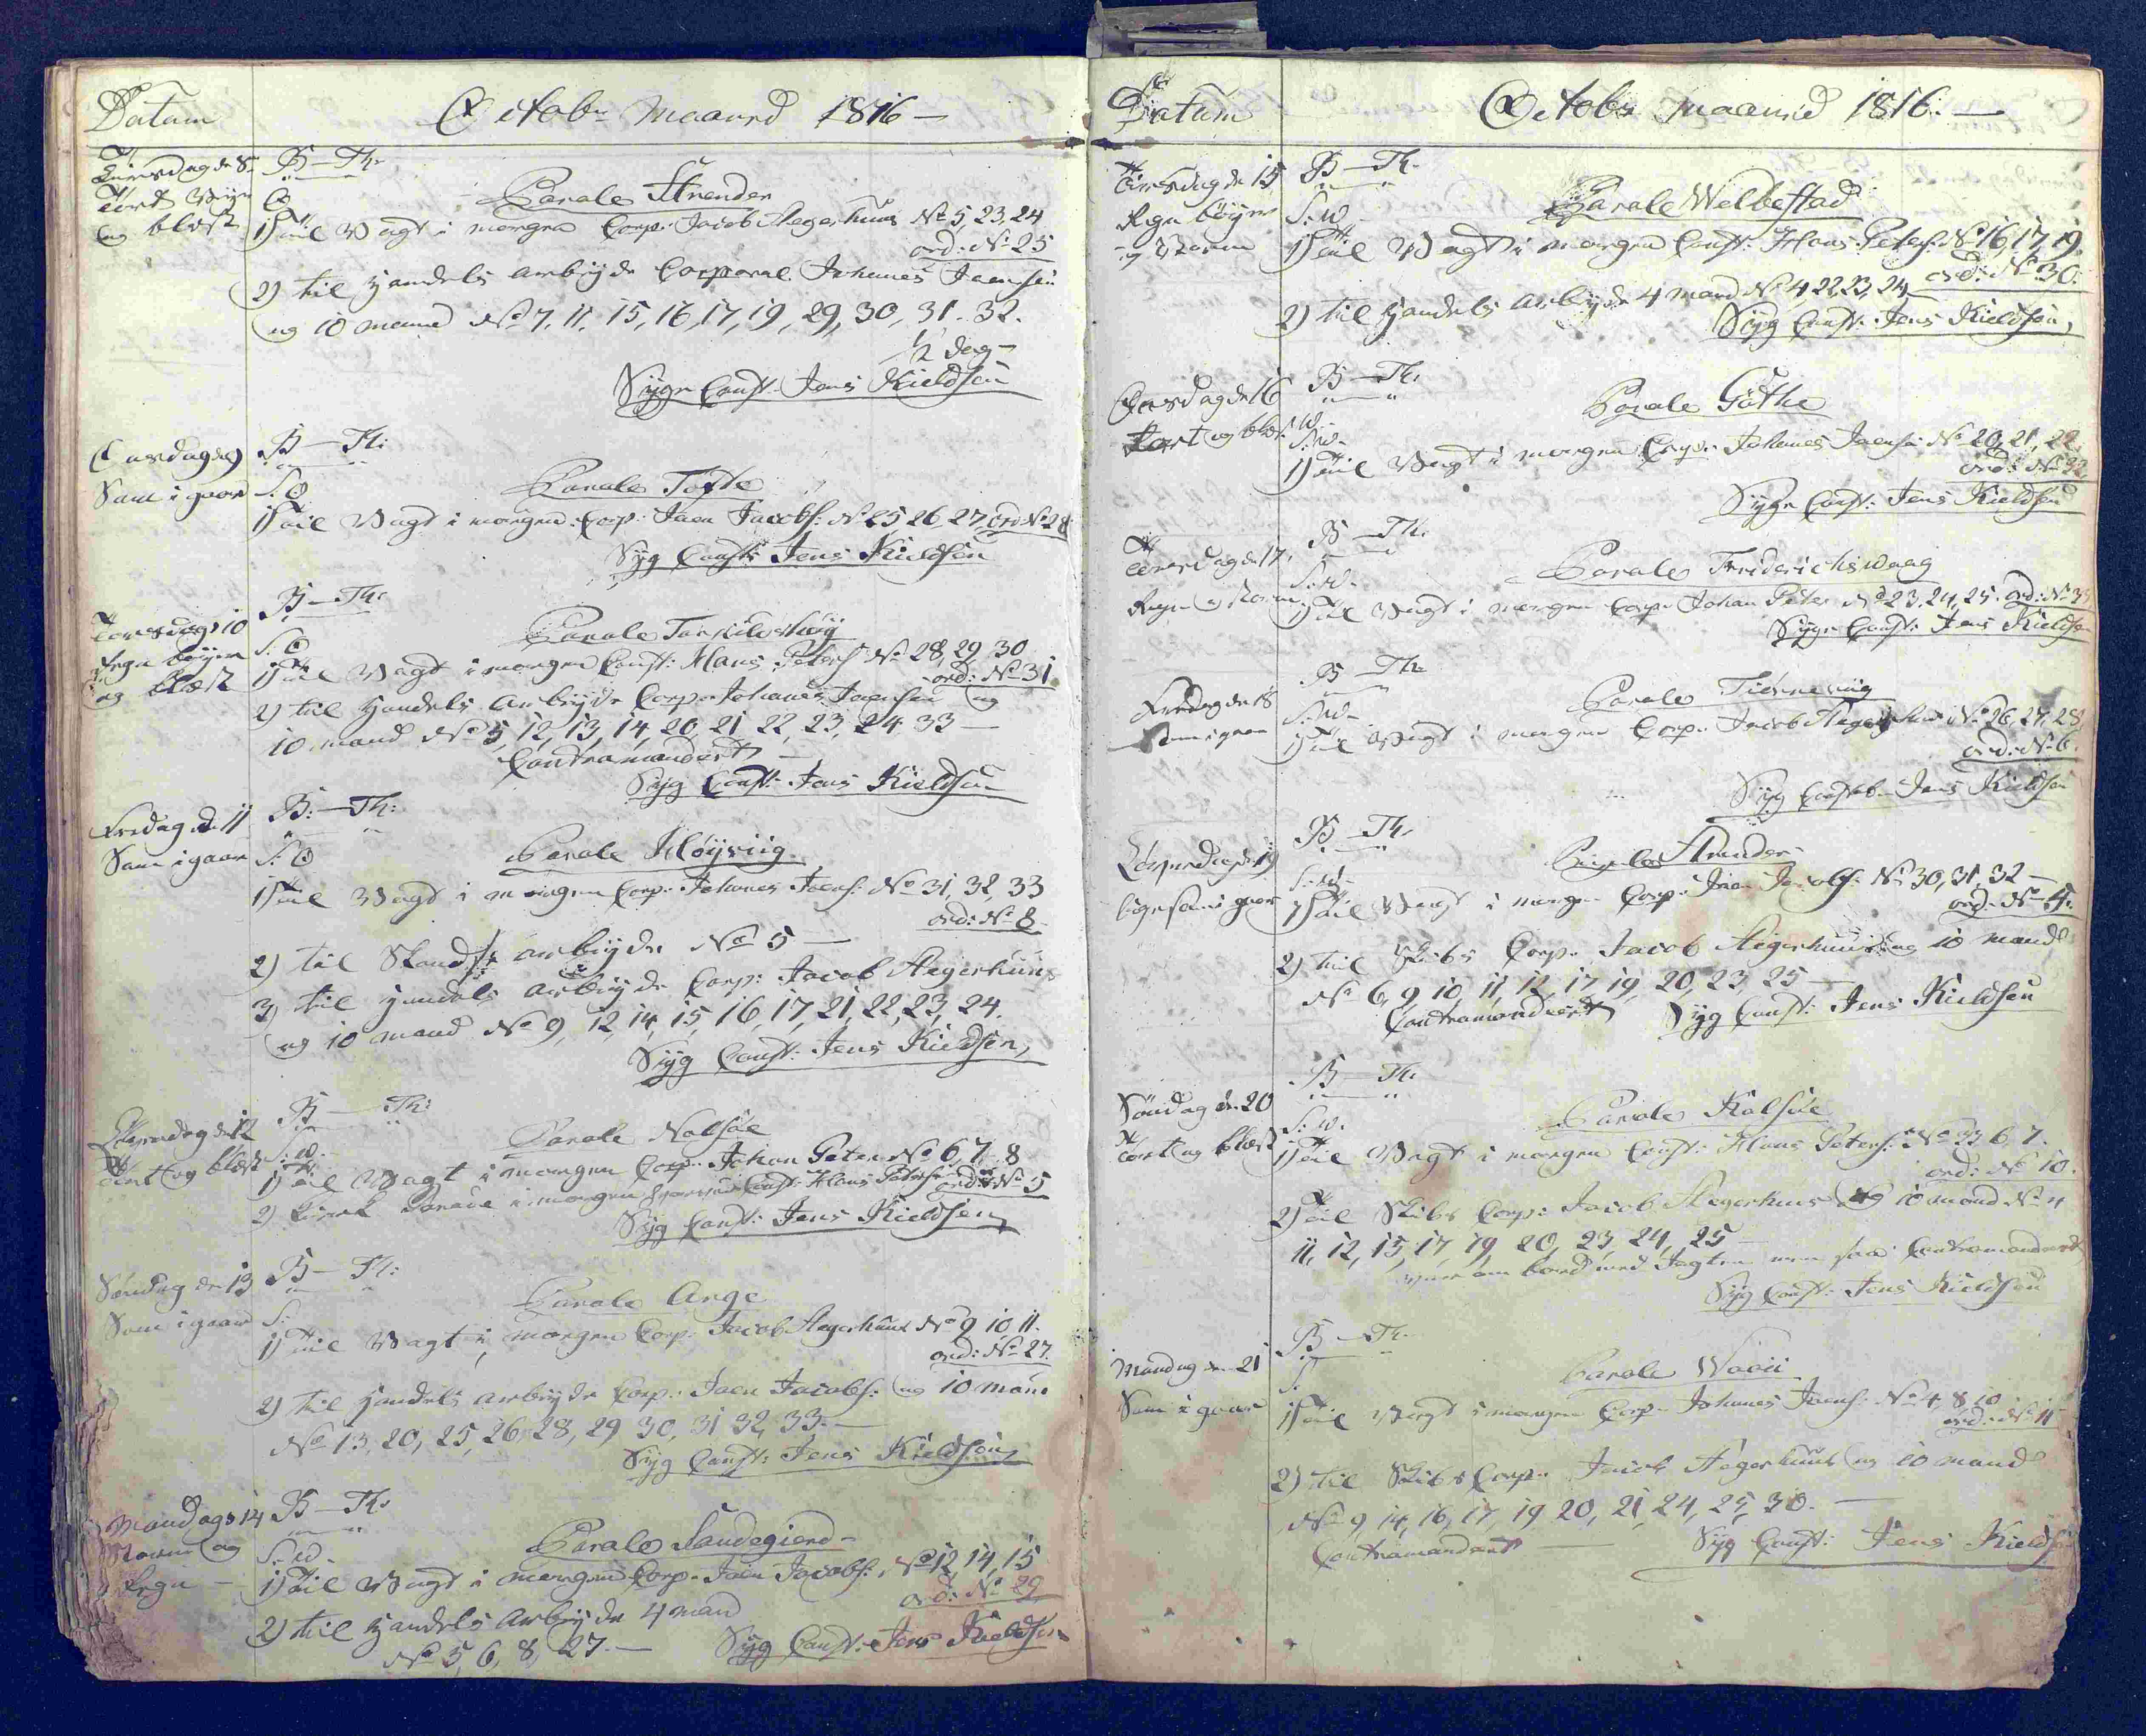 Datum
Octobr Maaned 1816 —
Tiirsdag d 8
B — Th:
Tört Bÿge
og blæst
O
Parole Strender
1) Til Vagt i morgen Corp: Jacob Aegerhuus No 5, 23, 24
ord: No 25
2) til Handels Arbeÿde Corporal Johanes Joensen
og 10 mand No 7, 11, 15, 16, 17, 19, 29, 30, 31. 32.
1/2 dag —
Sÿge Const: Jens Kieldsen
Onsdag d 9
B — Th:
Som i gaar
S: O
Parole Tofte
1) Til Vagt i morgen Corp: Joen Jacobs: No 25 26 27, ord No 28
Sÿg Const: Jens Kieldsen
Torsdag d 10
B — Th:
Regn bÿger
og blæst
S: O
Parole Torkilds
1) Til Vagt i morgen Const: Hans Peters: No 28, 29, 30
ord: No 31.
2) til Handels Arbeÿde Corp: Johanes Joensen og
10 mand No 5, 12, 13, 14, 20, 21 22, 23, 24 33 —
Contramandert —
Sÿg Const: Jens Kieldsen
Fredag d 11
B: — Th:
Som i gaar
S: O
Parole Höÿviig.
1) Til Vagt i morgen Corp: Johanes Joens: No 31, 32, 33
ord: No 8
2) til Skandse arbeÿde No 5 —
3) til Handels arbeÿde Corp: Jacob Aegerhuus
og 10 mand No 9, 12, 14, 15, 16, 17, 21, 22, 23, 24.
Sÿg Const: Jens Kieldsen,
Löverdag d 12
B — Th:
Tört og blæst
S: W.
Parole Nolsöe
1) Til Vagt i morgen Corp: Johan Peter No 6, 7. 8
2) Kirke Parade i morgen Const: Hans Peters: ord: No 5
Sÿg Const: Jens Kieldsen,
Söndag den 13
B — Th:
Som i gaar
S:
Parole Arge
1) Til Vagt i morgen Corp: Jacob Aegerhuus No 9 10 11.
ord: No 27.
2) til Handels arbeÿde Corp: Joen Jacobs: og 10 man
No 13, 20, 25, 26, 28, 29 30, 31 32, 33. —
Sÿg Const: Jens Kieldsen,
Mandag d 14
B — Th:
Storm og
Regn —
S: W.
Parole Sandegierd —
1) Til Vagt i morgen Corp: Joen Jacobs: No 12, 14, 15
ord: No 29
2) til Handels Arbeÿde 4 man
No 5, 6, 8, 27. —
Sÿg Const: Jens Kieldsen
Datum
Octobr Maaned 1816: —
Tiirsdag d 15
B — Th.
Regn böÿer
og Storm
S: W
Parole Welbestad
1) Til Vagt i morgen Const: Hans Peters: No 16, 17, 19.
ord: No 30.
2) til Handels Arbeÿde 4 mand No 4 22, 23, 24
Sÿg Const: Jens Kieldsen,
Onsdag d 16
B — Th:
Tört og blæst
S: W.
Parole Göthe
1) Til Vagt i morgen Corp: Johanes Joens: No 20, 21, 22
ord: No 32
Sÿge Const: Jens Kieldsen
Torsdag d 17.
B — Th:
Regn og Storm
S: W.
Parole Friderichswaag
1) Til Vagt i morgen Corp: Johan Peter No 23, 24, 25. ord: No 33
Sÿge Const: Jens Kieldsen
Fredag d 18
B — Th:
Som i gaar
S: W —
Parole Tiörneviig
1) Til Vagt i morgen Corp: Jacob Aegerhuus No 26, 27, 28
ord: No 6.
Sÿg Constab: Jens Kieldsen
Löverdag d 19
B — Th:
ligesom i gaar
S: W —
Parole Strender
1) Til Vagt i morgen Corp: Joen Jacobs: No 30, 31, 32 —
ord: No 4.
2) til Skibs Corp: Jacob Aegerhuus og 10 mand
No 6, 9, 10, 11, 12, 17 19, 20, 23, 25 —
Contramandert
Sÿg Const: Jens Kieldsen
Söndag den 20
B — Th:
Tört og blæst
S: W.
Parole Kolsöe
1) Til Vagt i morgen Const: Hans Peters: No 33 6. 7.
ord: No 10.
2) Til Skibs Corp: Jacob Aegerhuus og 10 mand No 4
11, 12, 15, 17, 19, 20, 23, 24, 25 —
var om bord med Jagten men saa Contramandert
Sÿg Const: Jens Kieldsen
Mandag den 21
B — Th.
Som i gaar
S:
Parole Waaii
1) Til Vagt i morgen Corp: Johanes Joens: No 4, 8, 10
ord: No 11
2) til Skibs Corp: Jacob Aegerhuus og 10 mand
No 9, 14, 16, 17, 19 20, 21, 24, 25, 30. —
Contramandert —
Sÿg Const: Jens Kieldsen